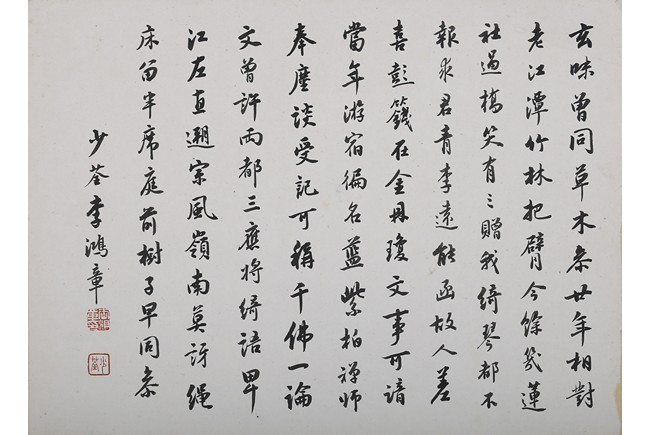 玄味曾同草木参廿年相對
老江潭竹林把臂今餘幾蓮
社過橋笑有三贈我綺琴都不
報求君青李遠能函故人差
喜彭籛在金瓊文事可諳
當年游宿徧名藍紫柏禅師
奉麈談受記可稱千佛一論
文曾許兩都三應将綺語卑
江左直遡宗風嶺南莫訝绳
床留半席庭前樹子早同参
少荃李鴻章